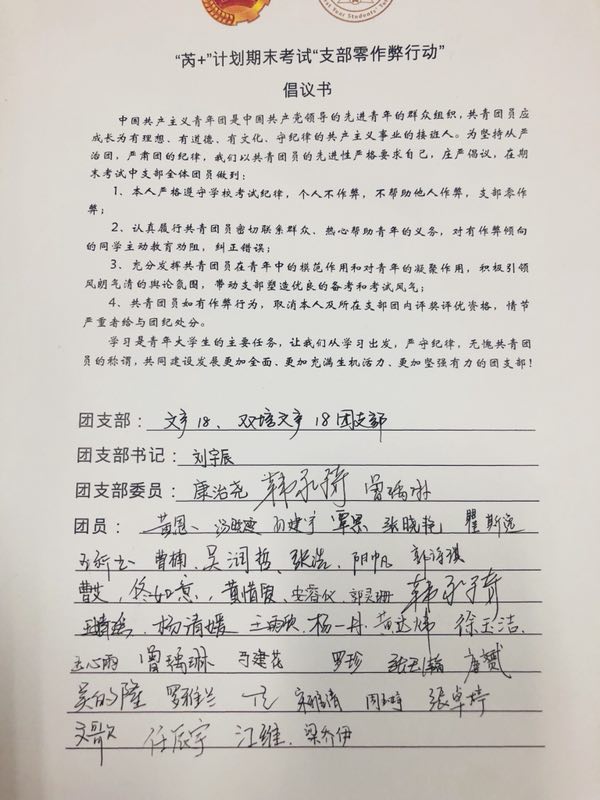 “芮+”计划期末考试“支部零作弊行动”
倡议书
中国共产主义青年团是中国共产党领导的先进青年的群众组织，共青团员应
成长为有理想、有道德、有文化、守纪律的共产主义事业的接班人。为坚持从严
治团，严肃团的纪律，我们以共青团员的先进性严格要求自己，庄严倡议，在期
末考试中支部全体团员做到：
1、本人严格遵守学校考试纪律，个人不作弊，不帮助他人作弊，支部零作
弊；
2、认真履行共青团员密切联系群众、热心帮助青年的义务，对有作弊倾向
的同学主动教育劝阻，纠正错误；
3、充分发挥共青团员在青年中的模范作用和对青年的凝聚作用，积极引领
风朗气清的舆论氛围，带动支部塑造优良的备考和考试风气；
4、共青团员如有作弊行为，取消本人及所在支部团内评奖评优资格，情节
严重者给与团纪处分。
学习是青年大学生的主要任务，让我们从学习出发，严守纪律，无愧共青团
员的称谓，共同建设发展更加全面、更加充满生机活力、更加坚强有力的团支部！
团支部：文产18、双培文产18团支部
团支部书记：刘宇辰
团支部委员：康治尧 曾瑞琳
团员： 覃思 张晓艳 瞿斯逸
曹楠、吴润哲、张浩、阴帆
曹艾，佟如意、黄惜恩、安蓉仪 郭灵珊
杨清媛、杨一丹、徐玉洁、
曾瑞琳 罗珍
罗雅兰 张卓婷
任辰宇 江维、梁乔伊